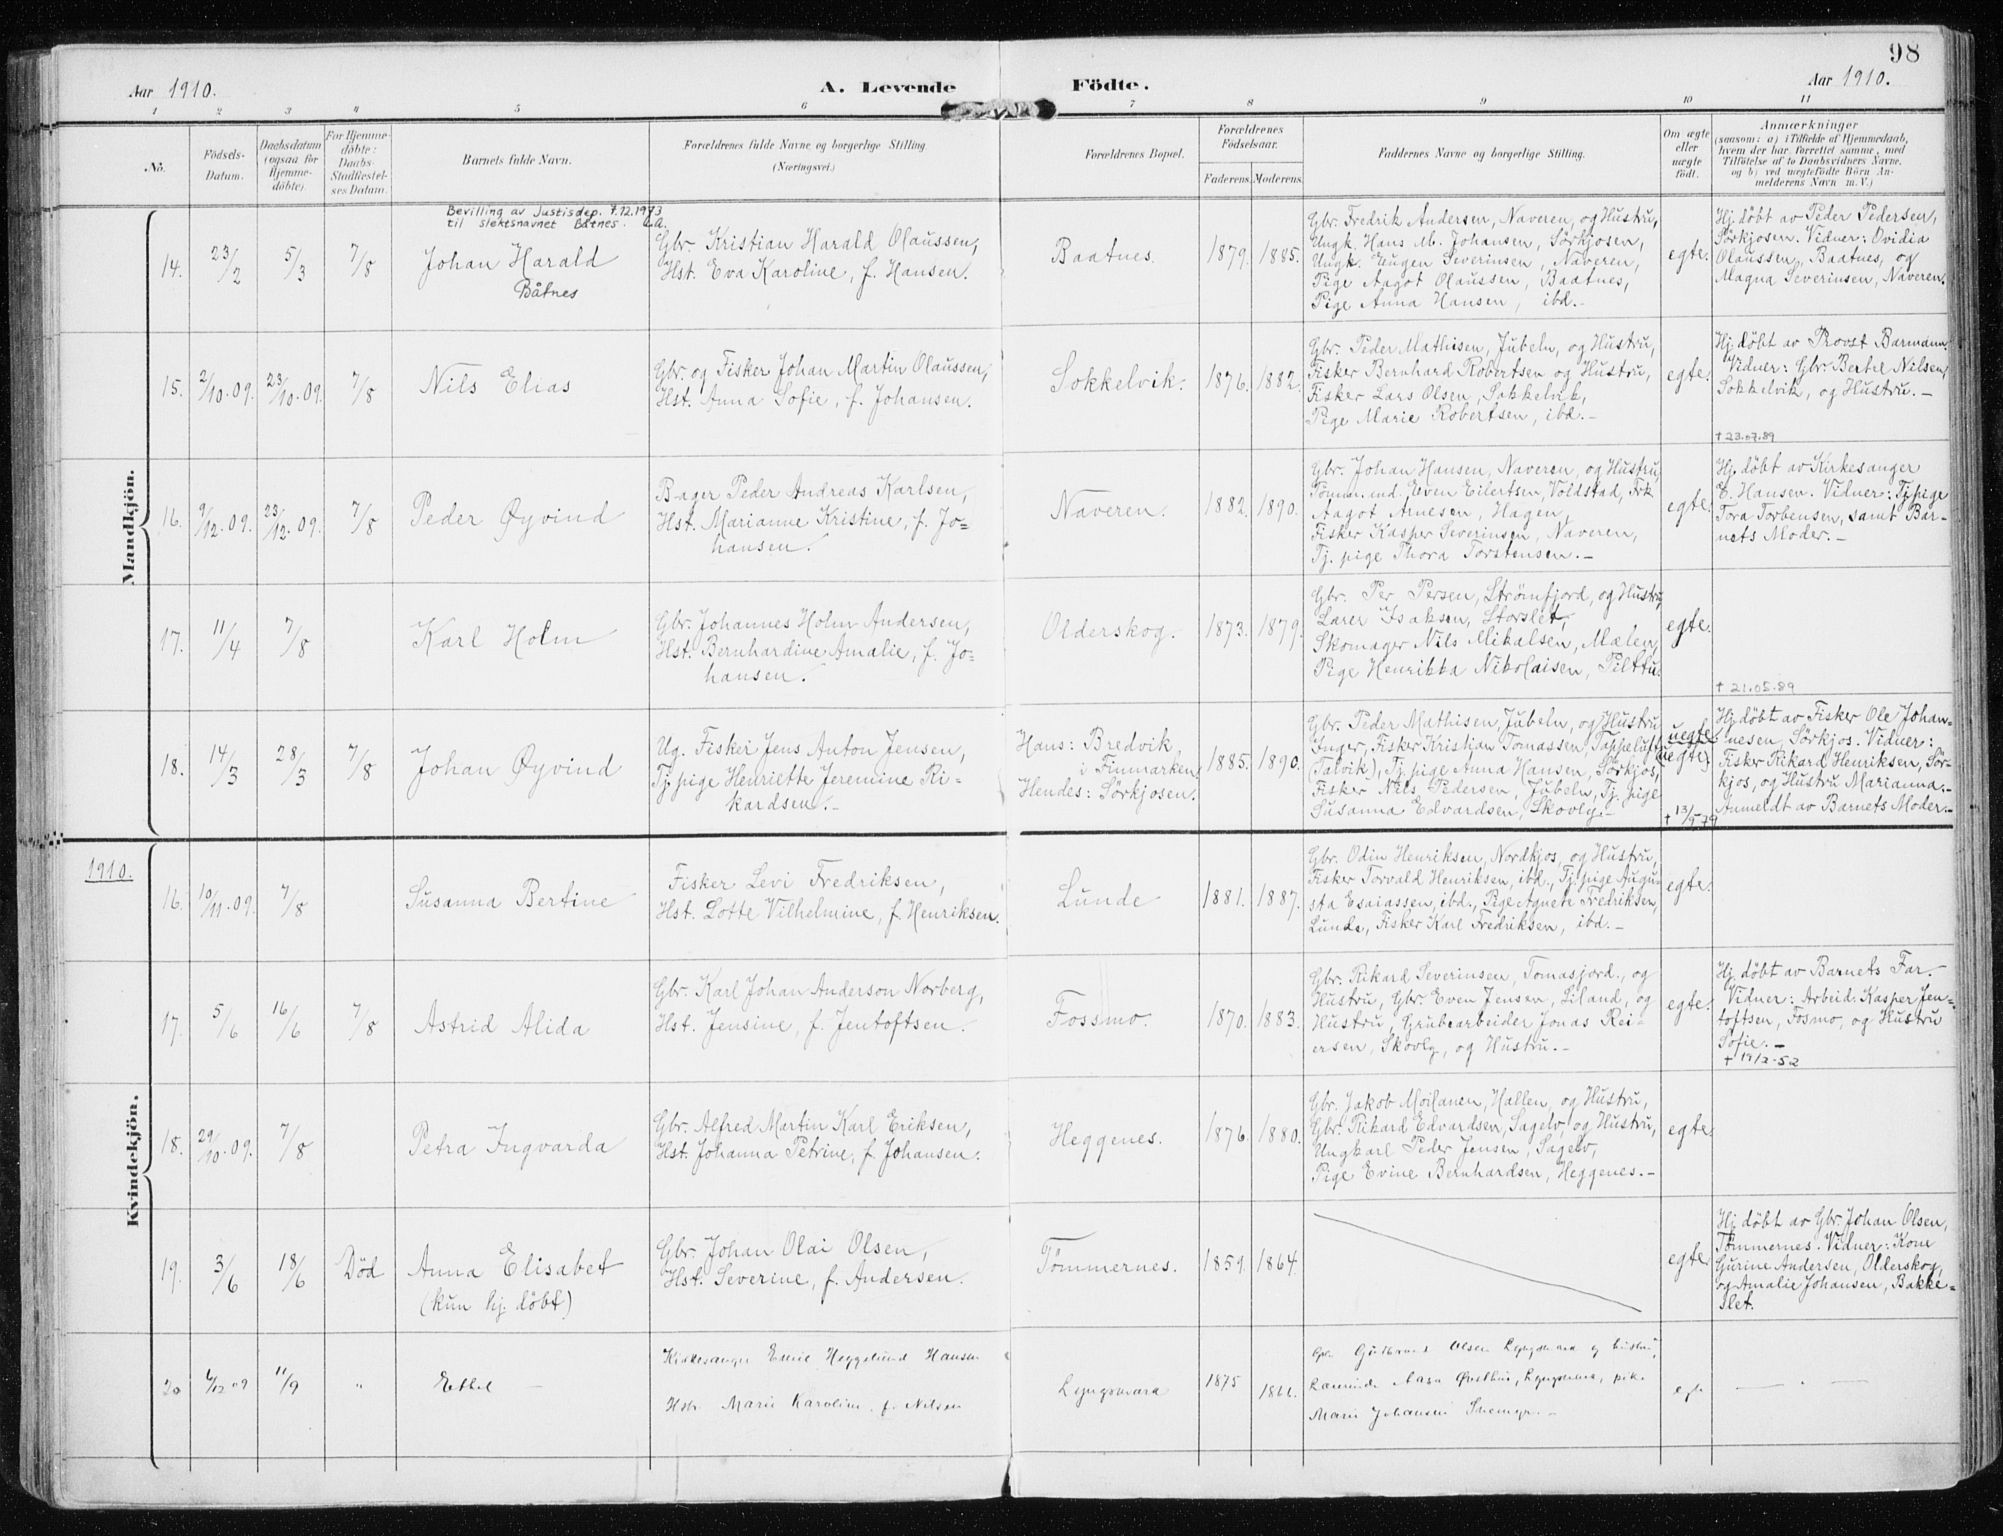 98
Aar 1910.
A. Levende
Födte.
Aar 1910.
1 2 3 4 5 6 7 8 9 10 11
No.
Födsels-Datum.
Daabsdatum (ogsaa for Hjemme-döbte).
For Hjemme-döbte: Daabs-Stadfæstel-ses Datum.
Barnets fulde Navn.
Forældrenes fulde Navne og borgerlige Stilling.
(Næringsvei.)
Forældrenes Bopæl.
Forældrenes Födselsaar.
Faderens. Moderens.
Faddernes Navne og borgerlige Stilling.
Om ægte eller uægte födt.
Anmærkninger
(saasom: a) i Tilfælde af Hjemmedaab,
hvem der har forrettet samme, med
Tilföielse af to Daabsvidners Navne,
og b) ved uægtefödte Börn An-
melderens Navn m. V.)
Mandkjön.
Bevilling av Justisdep. 7.12.1973
til slektsnavnet Båtnes.
14. 23/2 5/3 7/8
Johan Harald
Båtnes
Gbr. Kristian Harald Olaussen,
Hst. Eva Karoline, f. Hansen.
Baatnes. 1879. 1885.
Gbr. Fredrik Andersen, Naveren, og Hustru,
Ungk. Hans M. Johansen, Sørkjosen,
Ungk. Eugen Severinsen, Naveren,
Pige Aagot Olaussen, Baatnes,
Pige Anna Hansen, ibd.-
egte.
Hj. døbt av Peder Pedersen,
Sørkjosen. Vidner: Ovidia
Olaussen, Baatnes, og
Magna Severinsen, Naveren.
15. 2/10.09. 23/10.09. 7/8
Nils Elias
Gbr. og Fisker Johan Martin Olaussen,
Hst. Anna Sofie, f. Johansen.
Sokkelvik. 1876. 1882.
Gbr. Peder Mathisen, Jubeln, og Hustru,
Fisker Bernhard Robertsen og Hustru,
Fisker Lars Olsen, Sokkelvik,
Pige Marie Robertsen, ibd.-
egte.
Hj. døbt av Provst Barmann.
Vidner: Gbr. Berhel Nilsen,
Sokkelvik, og Hustru.-
† 23.07.89
16. 9/12.09. 23/12.09. 7/8
Peder Øyvind
Bager Peder Andreas Karlsen,
Hst. Marianne Kristine, f. Jo=
hansen.
Naveren. 1882. 1890.
Gbr. Johan Hansen, Naveren, og Hustru,
Tømm.md. Even Eilertsen, Voldstad, Frk
Aagot Arnesen, Hagen,
Fisker Kasper Severinsen, Naveren,
Tj. pige Thora Torstensen.-
egte.
Hj. døbt av Kirkesanger
E. Hansen. Vidner: Tj. pige
Tora Torbensen, samt Bar-
nets Moder.-
17. 11/4 7/8
Karl Holm
Gbr. Johannes Holm Andersen,
Hst. Bernhardine Amalie, f. Jo=
hansen.
Olderskog. 1873. 1879.
Gbr. Per Persen, Strømfjord, og Hustru,
Lærer Isaksen, Storslet,
Skomager Nils Mikalsen, Mælen,
Pige Henrikka Nikolaisen, Pilttu.
egte.
† 21.05.89
18. 14/3 28/3 7/8
Johan Øyvind
Ug. Fisker Jens Anton Jensen,
Tj. pige Henriette Jeremine Ri-
kardsen.-
Hans: Bredvik,
i Finmarken,
Hendes: Sørkjosen.
1885. 1890.
Gbr. Peder Mathisen, Jubeln, og Hustru
Inger, Fisker Kristian Tomassen, Tappeluft
(Talvik), Tj. pige Anna Hansen, Sørkjos,
Fisker Nils Pedersen, Jubeln, Tj. pige
Susanna Edvardsen, Skovly.-
uegte
(uegte)
† 13/5 79
Hj. døbt av Fisker Ole Johan-
nesen, Sørkjos. Vidner:
Fisker Rikard Henriksen, Sør-
kjos, og Hustru Marianna.-
Anmeldt av Barnets Moder.-
1910.
Kvindekjön.
16. 10/11.09. 7/8
Susanna Bertine
Fisker Levi Fredriksen,
Hst. Lotte Vilhelmine, f. Henriksen.
Lunde 1881. 1887.
Gbr. Odin Henriksen, Nordkjos, og Hustru,
Fisker Torvald Henriksen, ibd., Tj. pige Augu-
sta Esaiassen, ibd., Pige Agnete Fredriksen,
Lunde, Fisker Karl Fredriksen, ibd.-
egte.
17. 5/6 16/6 7/8
Astrid Alida
Gbr. Karl Johan Anderson Norberg,
Hst. Jensine, f. Jentoftsen.
Fossmo. 1870. 1883.
Gbr. Rikard Severinsen, Tomasjord., og
Hustru, Gbr. Even Jensen, Liland, og
Hustru, Grubearbeider Jonas Rei-
ersen, Skovly, og Hustru.-
egte.
Hj. døbt av Barnets Far.-
Vidner: Arbeid. Kasper Jen-
toftsen, Fosmo, og Hustru
Sofie.-
† 19/2-52
18. 29/10.09. 7/8
Petra Ingvarda
Gbr. Alfred Martin Karl Eriksen,
Hst. Johanna Petrine, f. Johansen.
Heggenes. 1876. 1880.
Gbr. Jakob Moilanen, Hallen, og Hustru,
Gbr. Rikard Edvardsen, Sagelv, og Hustru,
Ungkarl Peder Jensen, Sagelv,
Pige Evine Bernhardsen, Heggenes.-
egte.
19. 3/6 18/6 Død
Anna Elisabet
(kun hj. døbt)
Gbr. Johan Olai Olsen,
Hst. Severine, f. Andersen.
Tømmernes. 1859. 1864.
egte.
Hj. døbt av Gbr. Johan Olsen,
Tømmernes. Vidner: Kone
Gurine Andersen, Olderskog,
og Amalie Johansen, Bakke-
slet.
20 6/12 09 11/9 "
Ethel -
Kirkesanger Emil Heggelund Hansen
Hstr. Marie Karoline f. Nilsen
Lyngsmara 1875
Gbr. Gudbrand Olsen Lyngsmara og hustru,
Marie Johansen
egte
- " -